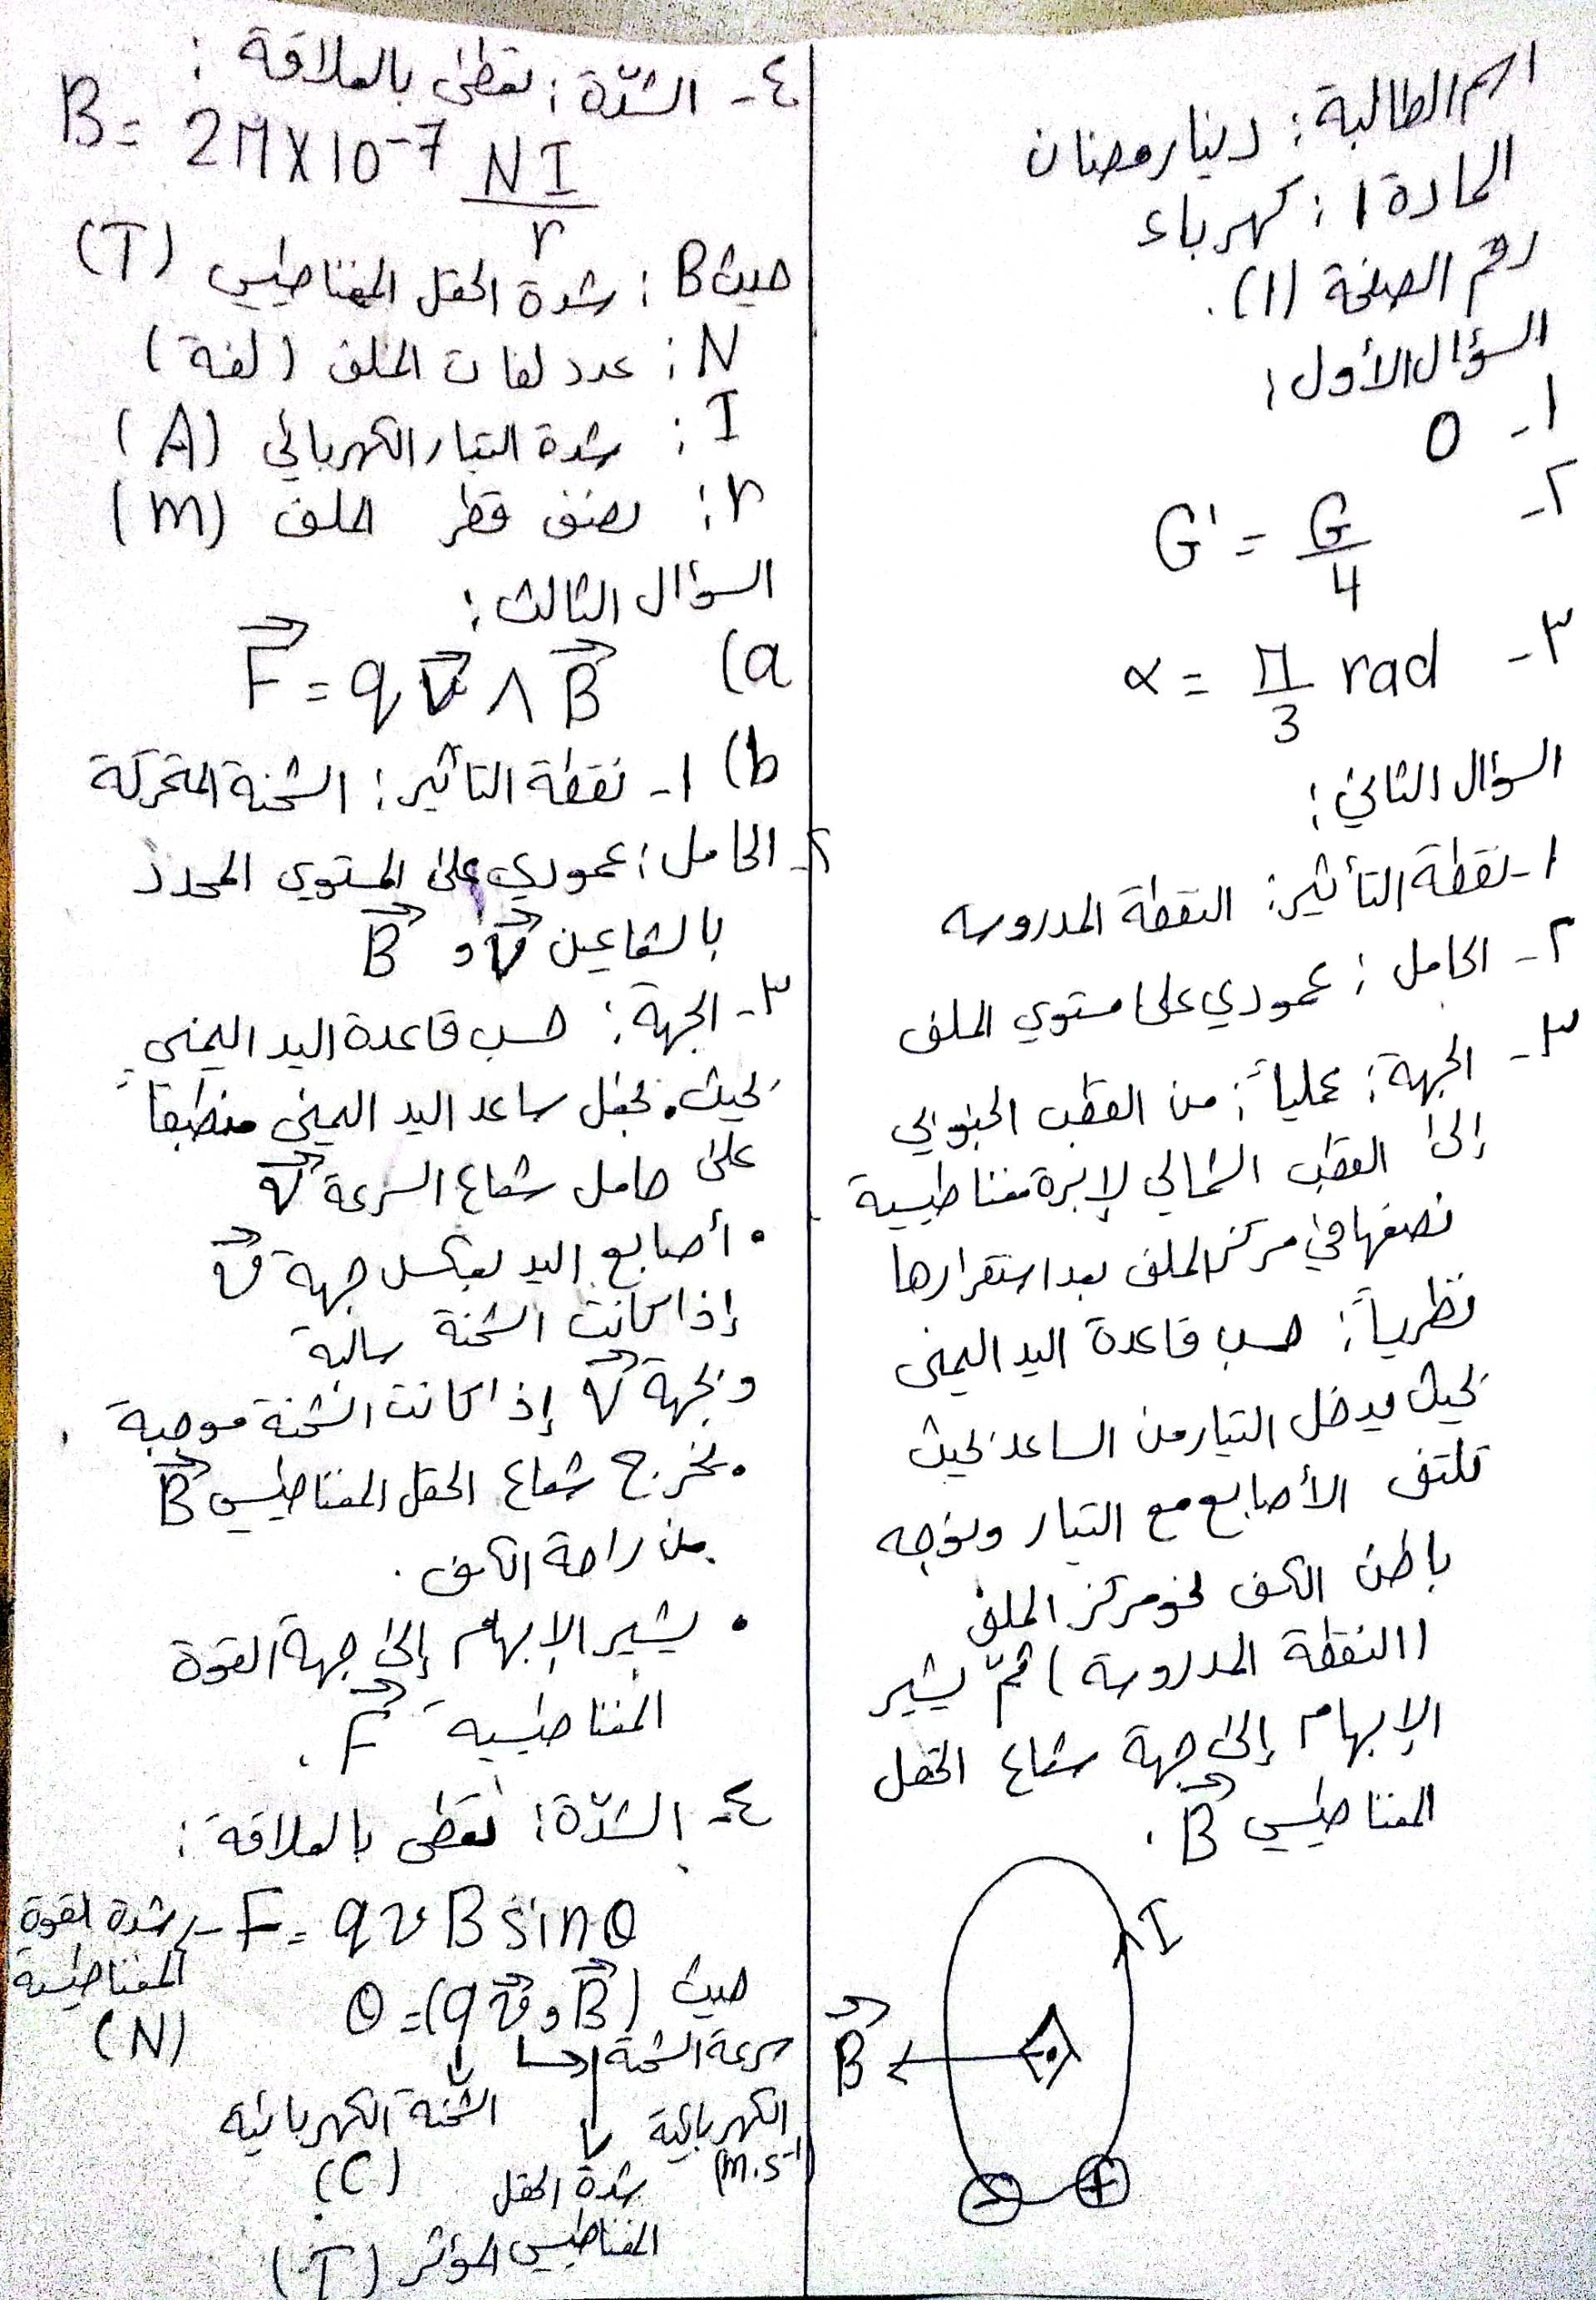 اسم الطالبة: دينا رمضان
المادة: كهرباء
رقم الصفحة (١).
السؤال الأول:
١- 0
٢- G' = G/4
٣- α = π/3 rad
السؤال الثاني:
١- نقطة التأثير: النقطة المدروسة
٢- الحامل: عمودي على مستوي الملف
٣- الجهة: عملياً: من القطب الجنوبي
إلى القطب الشمالي لإبرة مغناطيسية
نضعها في مركز الملف بعد استقرارها
نظرياً: حسب قاعدة اليد اليمنى
بحيث يدخل التيار من الساعد بحيث
تلتف الأصابع مع التيار ونوجه
باطن الكف نحو مركز الملف
(النقطة المدروسة) ثمّ يشير
الإبهام إلى جهة شعاع الحقل
المغناطيسي B⃗.
I
B⃗
- +
٤- الشدّة: تعطى بالعلاقة:
B = 2π×10⁻⁷ NI/r
حيث B: شدة الحقل المغناطيسي (T)
N: عدد لفات الملف (لفة)
I: شدة التيار الكهربائي (A)
r: نصف قطر الملف (m)
السؤال الثالث:
a) F⃗ = q v⃗ ∧ B⃗
b) ١- نقطة التأثير: الشحنة المتحركة
٢- الحامل: عمودي على المستوي المحدد
بالشعاعين v⃗ و B⃗
٣- الجهة: حسب قاعدة اليد اليمنى
بحيث • نجعل ساعد اليد اليمنى منطبقاً
على حامل شعاع السرعة v⃗
• أصابع اليد بعكس جهة v⃗
إذا كانت الشحنة سالبة
وبجهة v⃗ إذا كانت الشحنة موجبة
• يخرج شعاع الحقل المغناطيسي B⃗
من راحة الكف.
• يشير الإبهام إلى جهة القوة
المغناطيسية F⃗.
٤- الشدّة: تعطى بالعلاقة:
F = qvB sinθ
شدة القوة
المغناطيسية
(N)
حيث θ = (qv⃗ و B⃗)
سرعة الشحنة
الكهربائية
(m.s⁻¹)
الشحنة الكهربائية
(C)
شدة الحقل
المغناطيسي المؤثر (T)